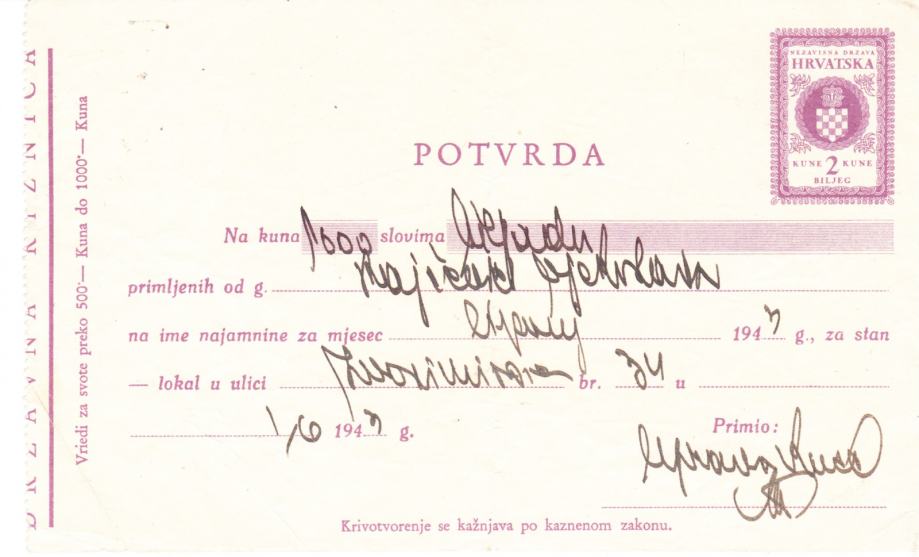 DRŽAVNA RIZNICA
Vriedi za svote preko 500·— Kuna do 1000·— Kuna
NEZAVISNA DRŽAVA
HRVATSKA
KUNE 2 KUNE
BILJEG
POTVRDA
Na kuna 1000 slovima
primljenih od g.
na ime najamnine za mjesec 194 g., za stan
— lokal u ulici br. 34 u
1/6 194 g.
Primio:
Uprava kuće
Krivotvorenje se kažnjava po kaznenom zakonu.